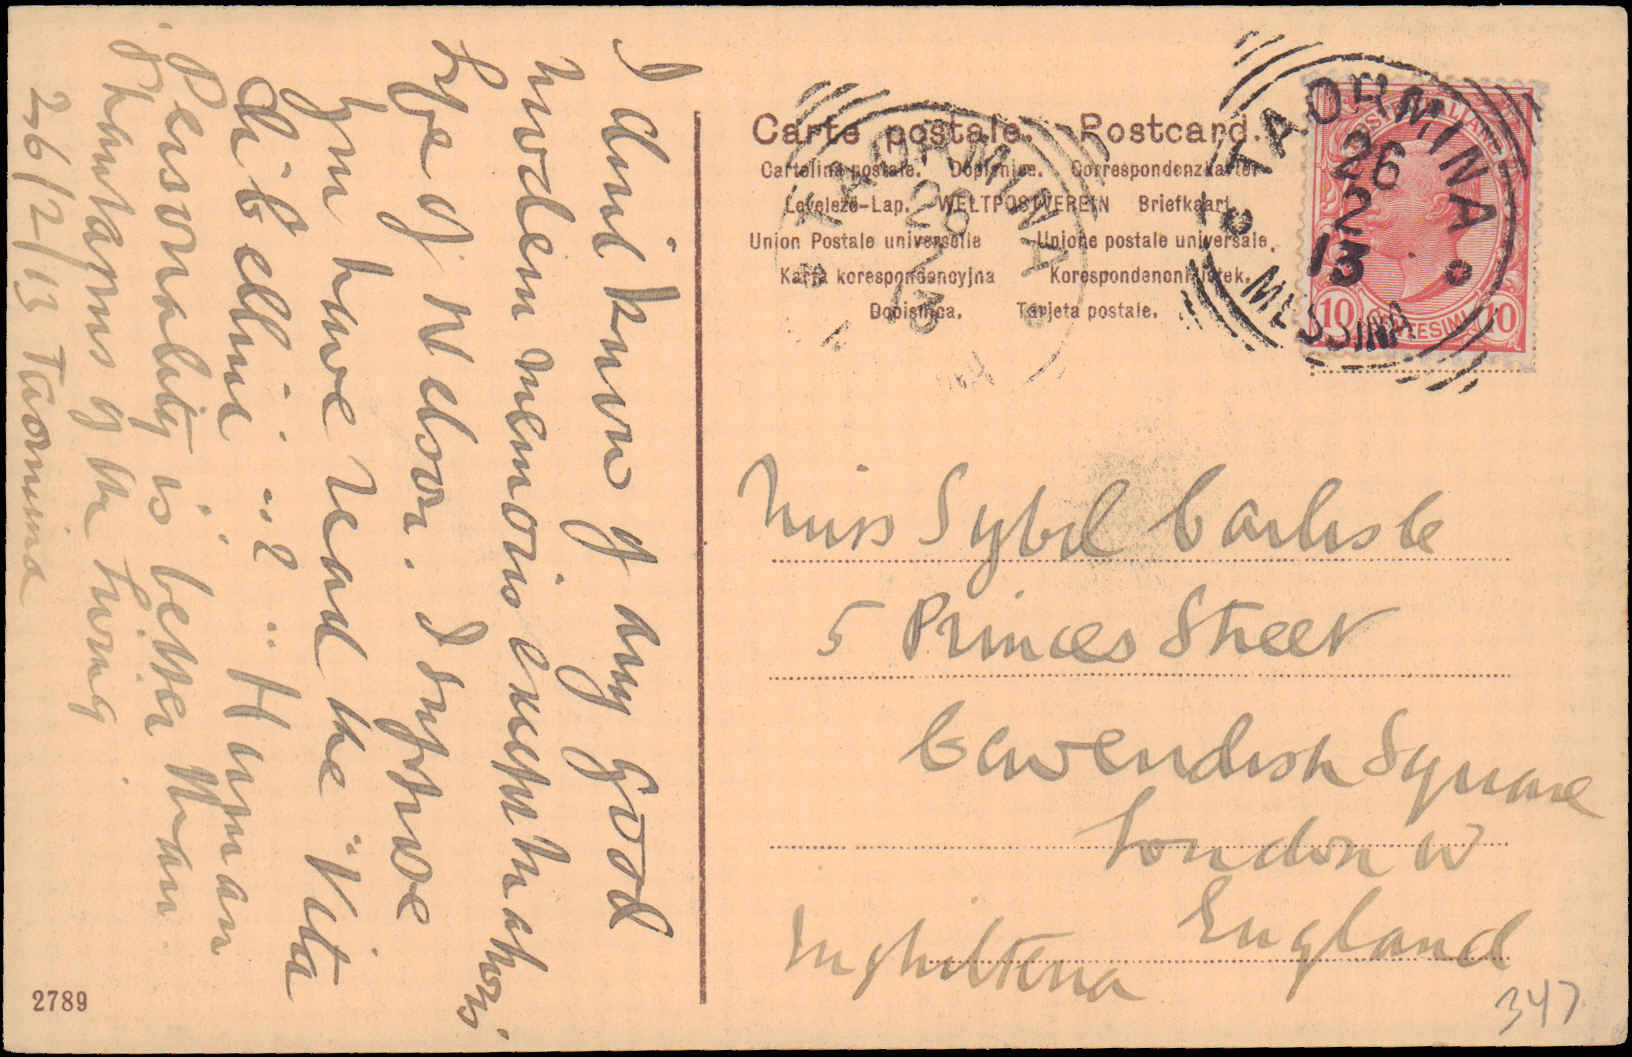 I dont know of any good
modern memoirs except Mahons
Life of Nelson. I suppose
you have read the "Vita
di B Cellini"
"Human
Personality is better than
phantasms of the Living
26/2/13 Taormina
2789
Carte postale. Postcard.
Cartolina postale. Dopisnice. Correspondenzkarte.
Levelező-Lap. WELTPOSTVEREIN Briefkaart
Union Postale universelle Unione postale universale.
Karta korespondencyjna
Dopisnica. Tarjeta postale.
TAORMINA
26
2
13
MESSINA
TAORMINA
26
2
13
10 CENTESIMI 10
Miss Sybil Carlisle
5 Princes Street
Cavendish Square
London W
England
Inghilterra
347